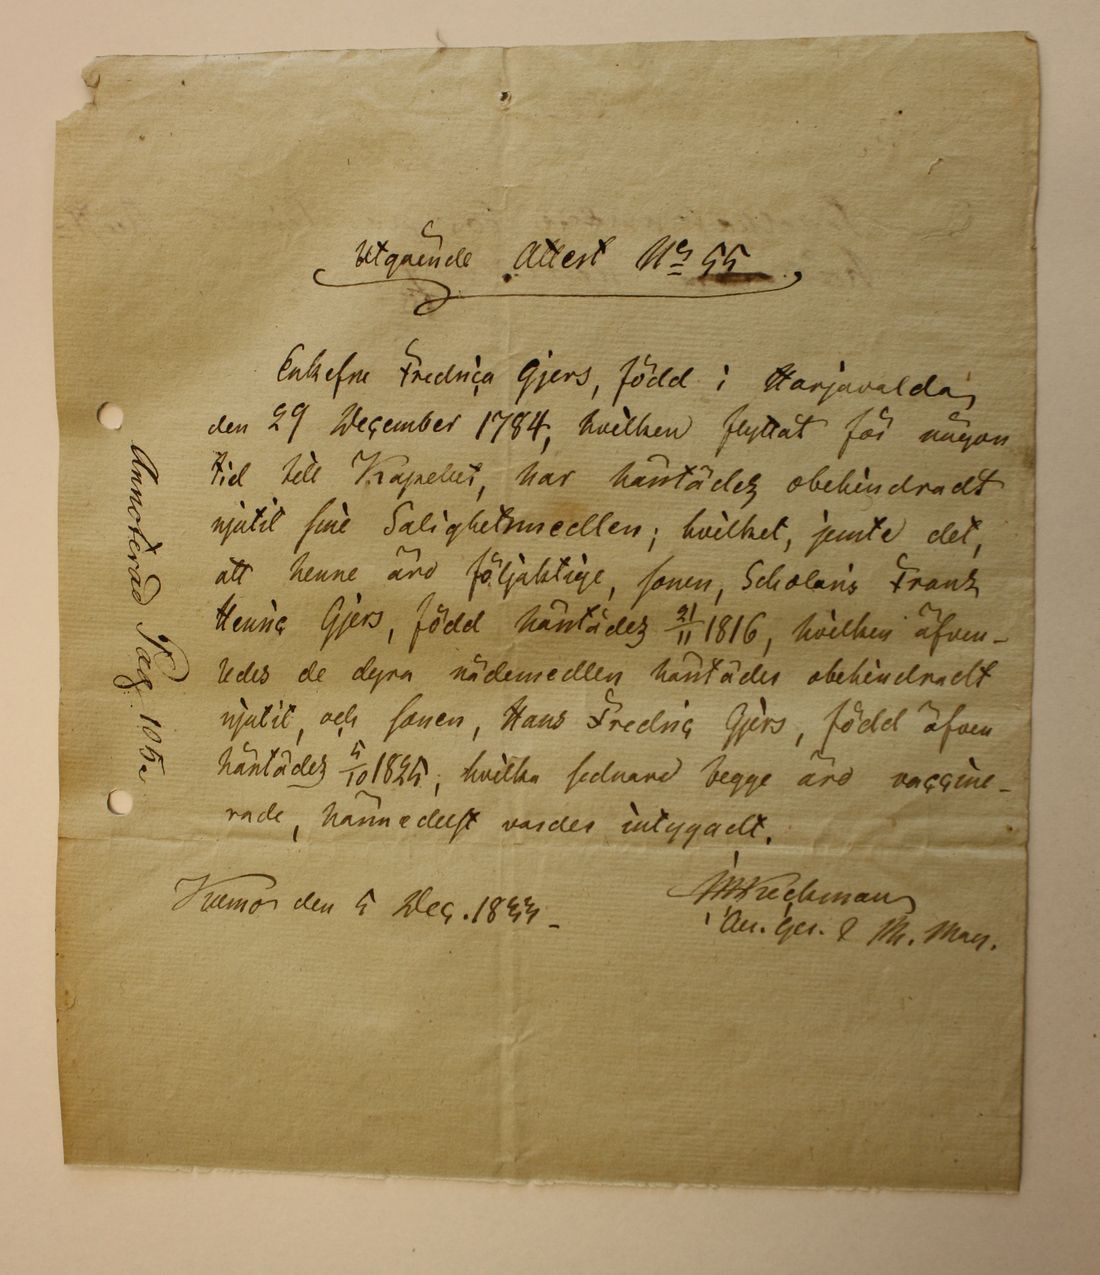 Utgående Attest No 55
Enkefru Fredrica Gjers, född i Harjavalda,
den 29 December 1784, hvilken flyttat för någon
tid till Kapellet, har härstädes obehindradt
njutit sine Salighetsmedlen; hvilket, jemte det,
att henne äro följaktige, sonen, Scholaris Frans
Henric Gjers, född härstädes 21/11 1816, hvilken äfven-
ledes de dyra nådemedlen härstädes obehindradt
njutit, och sonen, Hans Fredric Gjers, född äfven
härstädes 5/10 1825, hvilka sednare begge äro vaccine-
rade, härmedelst varder intygadt.
Kumo den 5 Dec. 1833
Annoterad Pag. 105